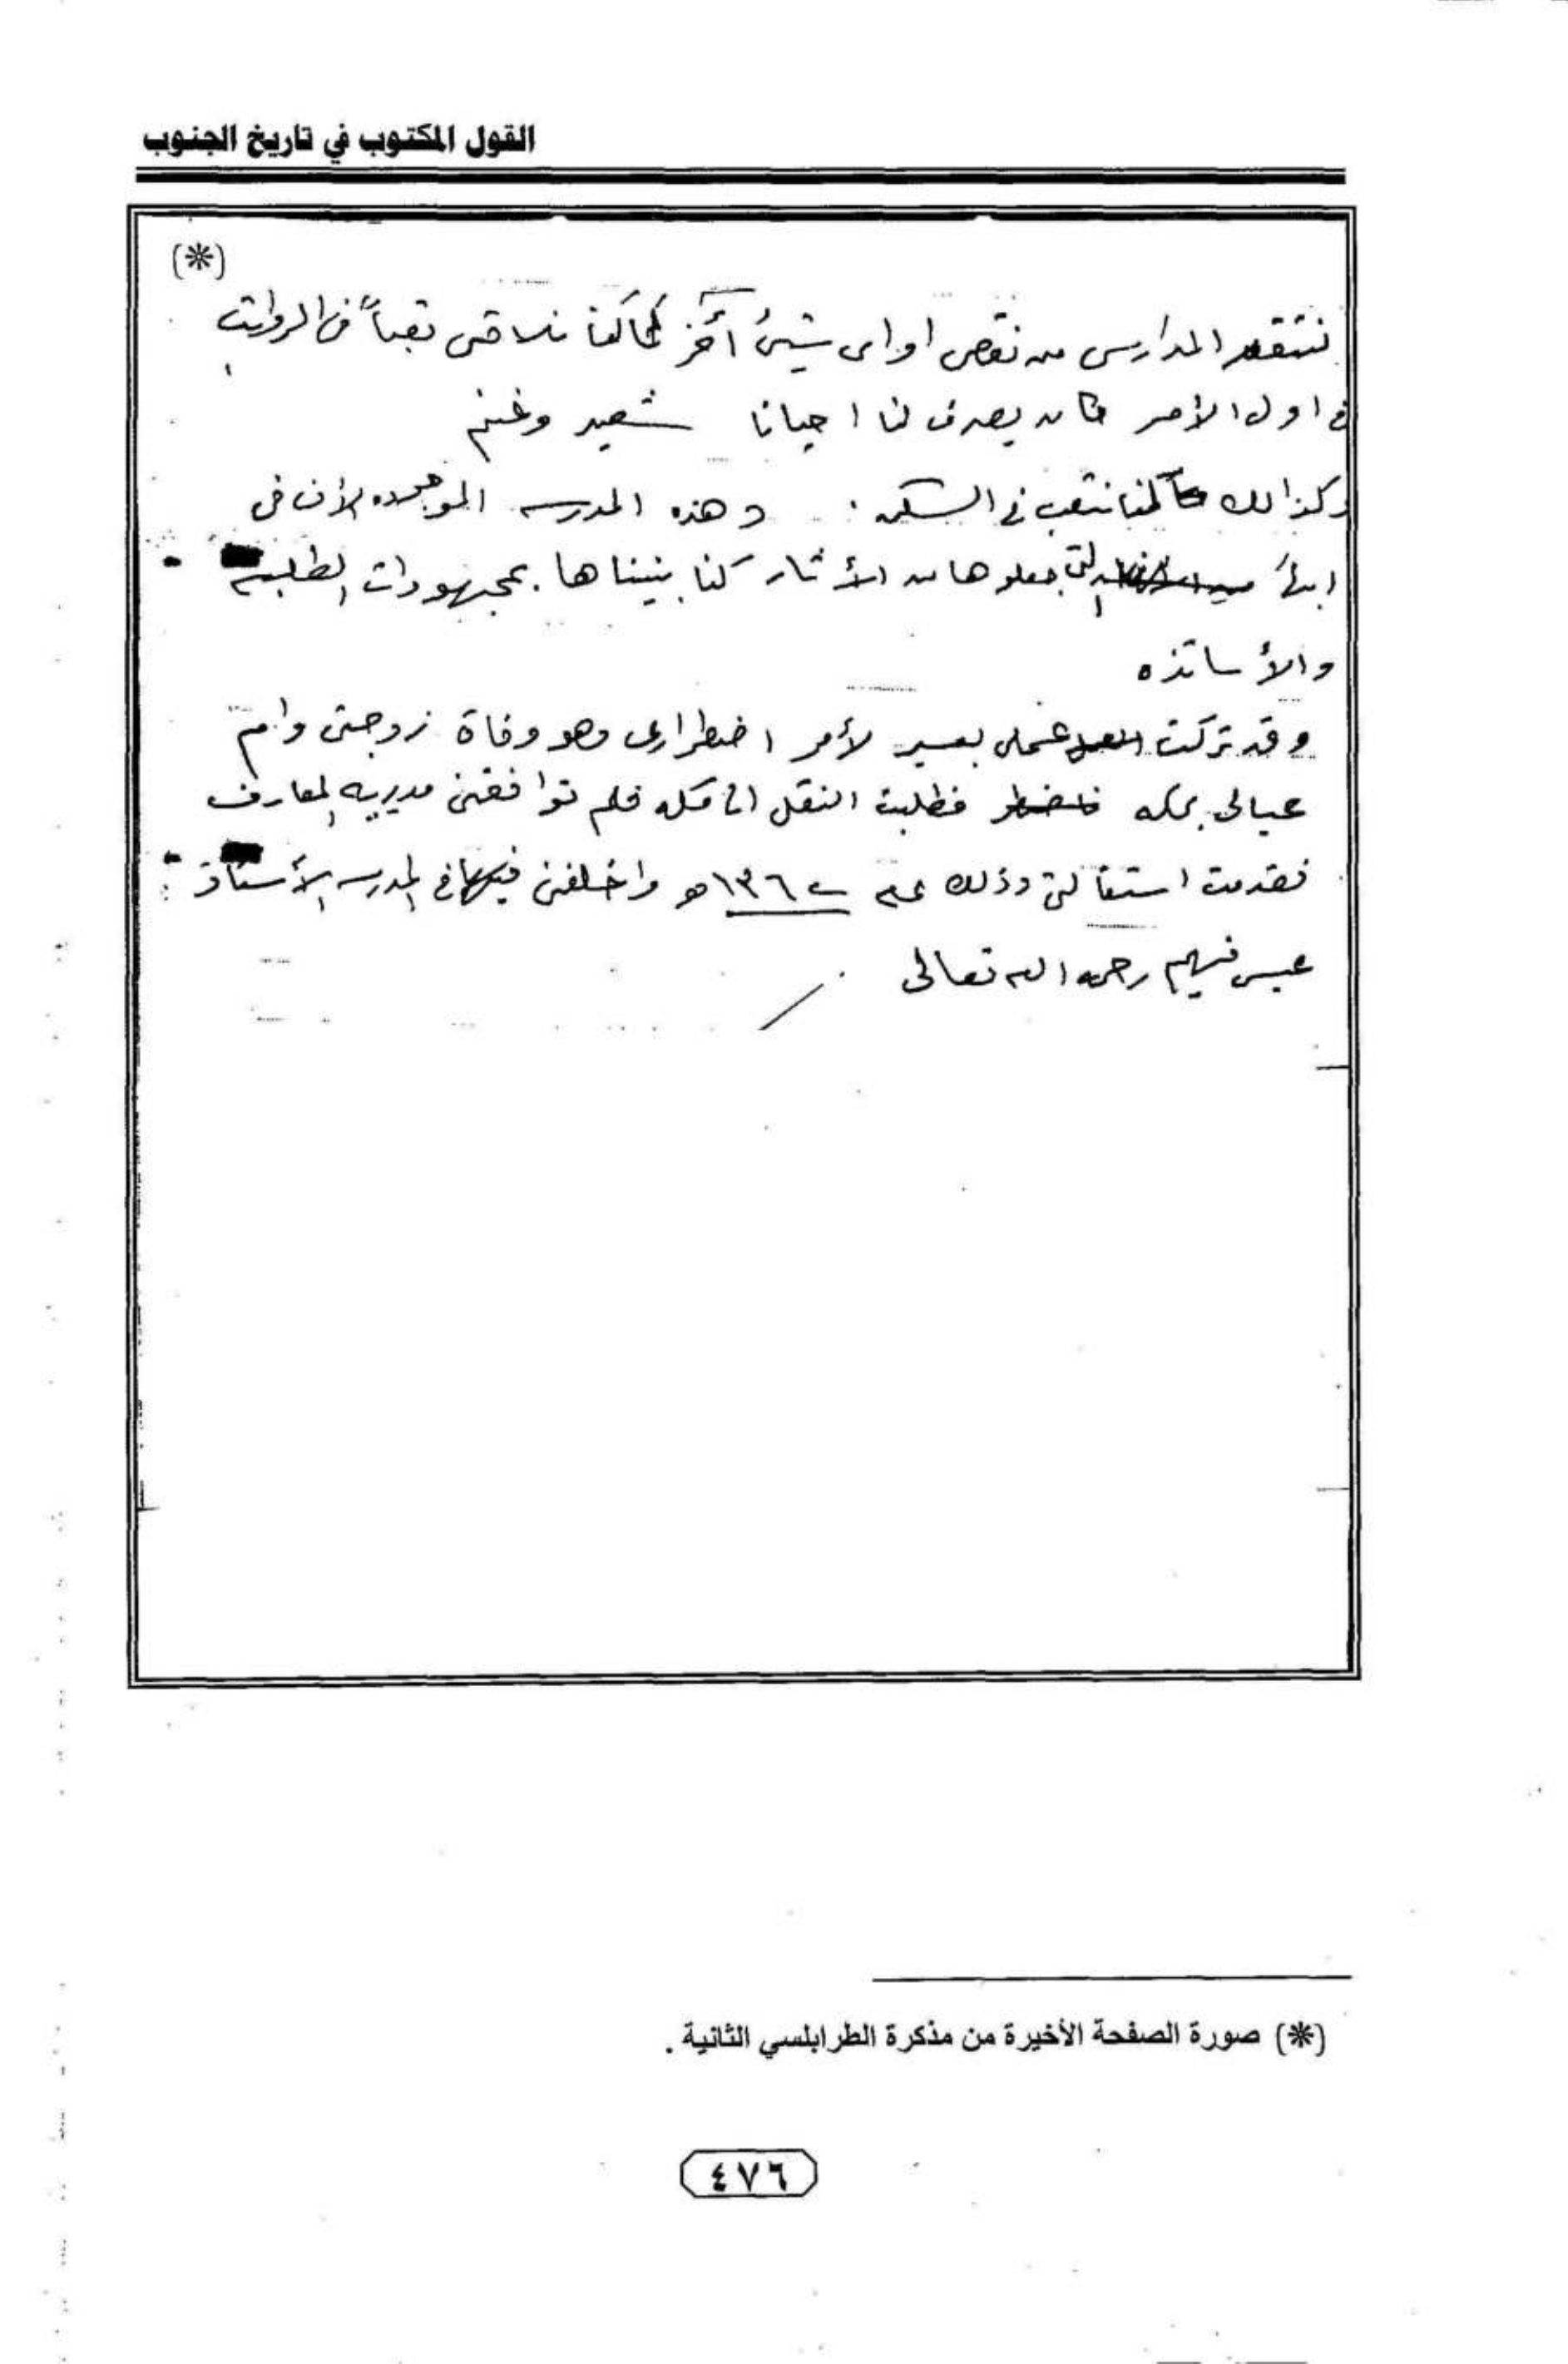 القول المكتوب في تاريخ الجنوب
(*)
نتفقد المدارس من نقص او اى شيئ آخر كما كنا نلاقى تعباً فى الرواتب
فى اول الأمر كان يصرف لنا احيانا شعير وغنم
وكذالك كنا نتعب فى السكن . وهذه المدرسه الموجوده الأن فى
ابها التى جعلوها من الأثار كنا بنيناها بمجهودات الطلبه
والأساتذه
وقد تركت عملى بعسير لأمر اضطرارى وهو وفاة زوجتى وام
عيالى بمكه فطلبت النقل الى مكه فلم توافقنى مديريه المعارف
فقدمت استقالتى وذلك عام هـ واخلفنى فيها فى المدرسه الأستاذ
فهيم رحمه الله تعالى
(*) صورة الصفحة الأخيرة من مذكرة الطرابلسي الثانية .
٤٧٦